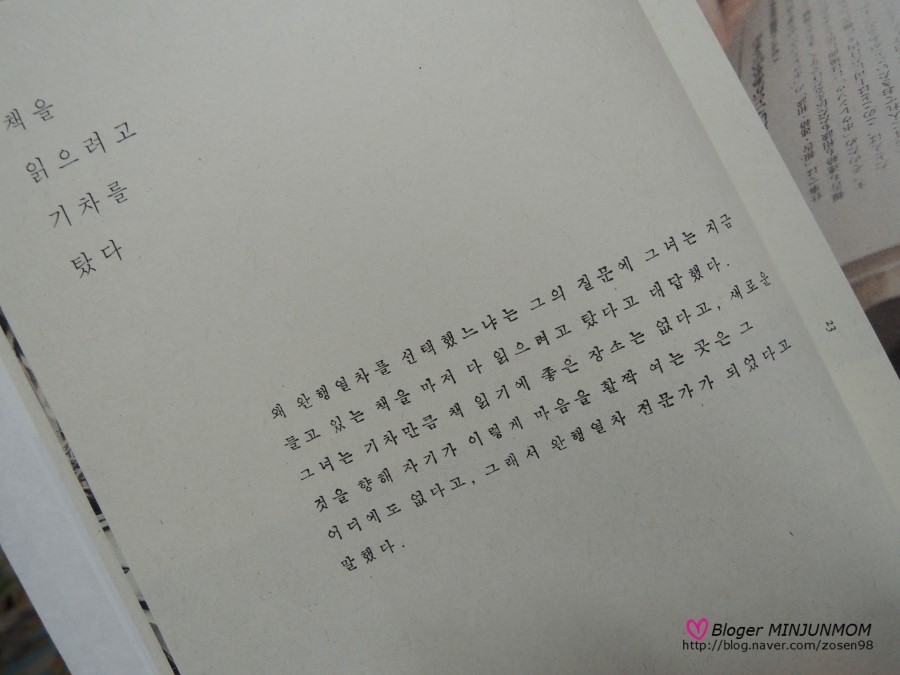 책을
읽으려고
기차를
탔다
왜 완행열차를 선택했느냐는 그의 질문에 그녀는 지금
들고 있는 책을 마저 다 읽으려고 탔다고 대답했다.
그녀는 기차만큼 책 읽기에 좋은 장소는 없다고, 새로운
것을 향해 자기가 이렇게 마음을 활짝 여는 곳은 그
어디에도 없다고, 그래서 완행열차 전문가가 되었다고
말했다.
23
Bloger MINJUNMOM
http://blog.naver.com/zosen98